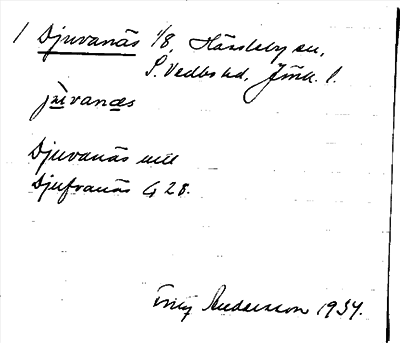 1 Djuvanäs 1/8, Hässleby sn,
S. Vedbo hd, Jönk. l.
jùvanæs
Djuvanäs mtl
Djufvanäs G 28.
Andersson 1934.